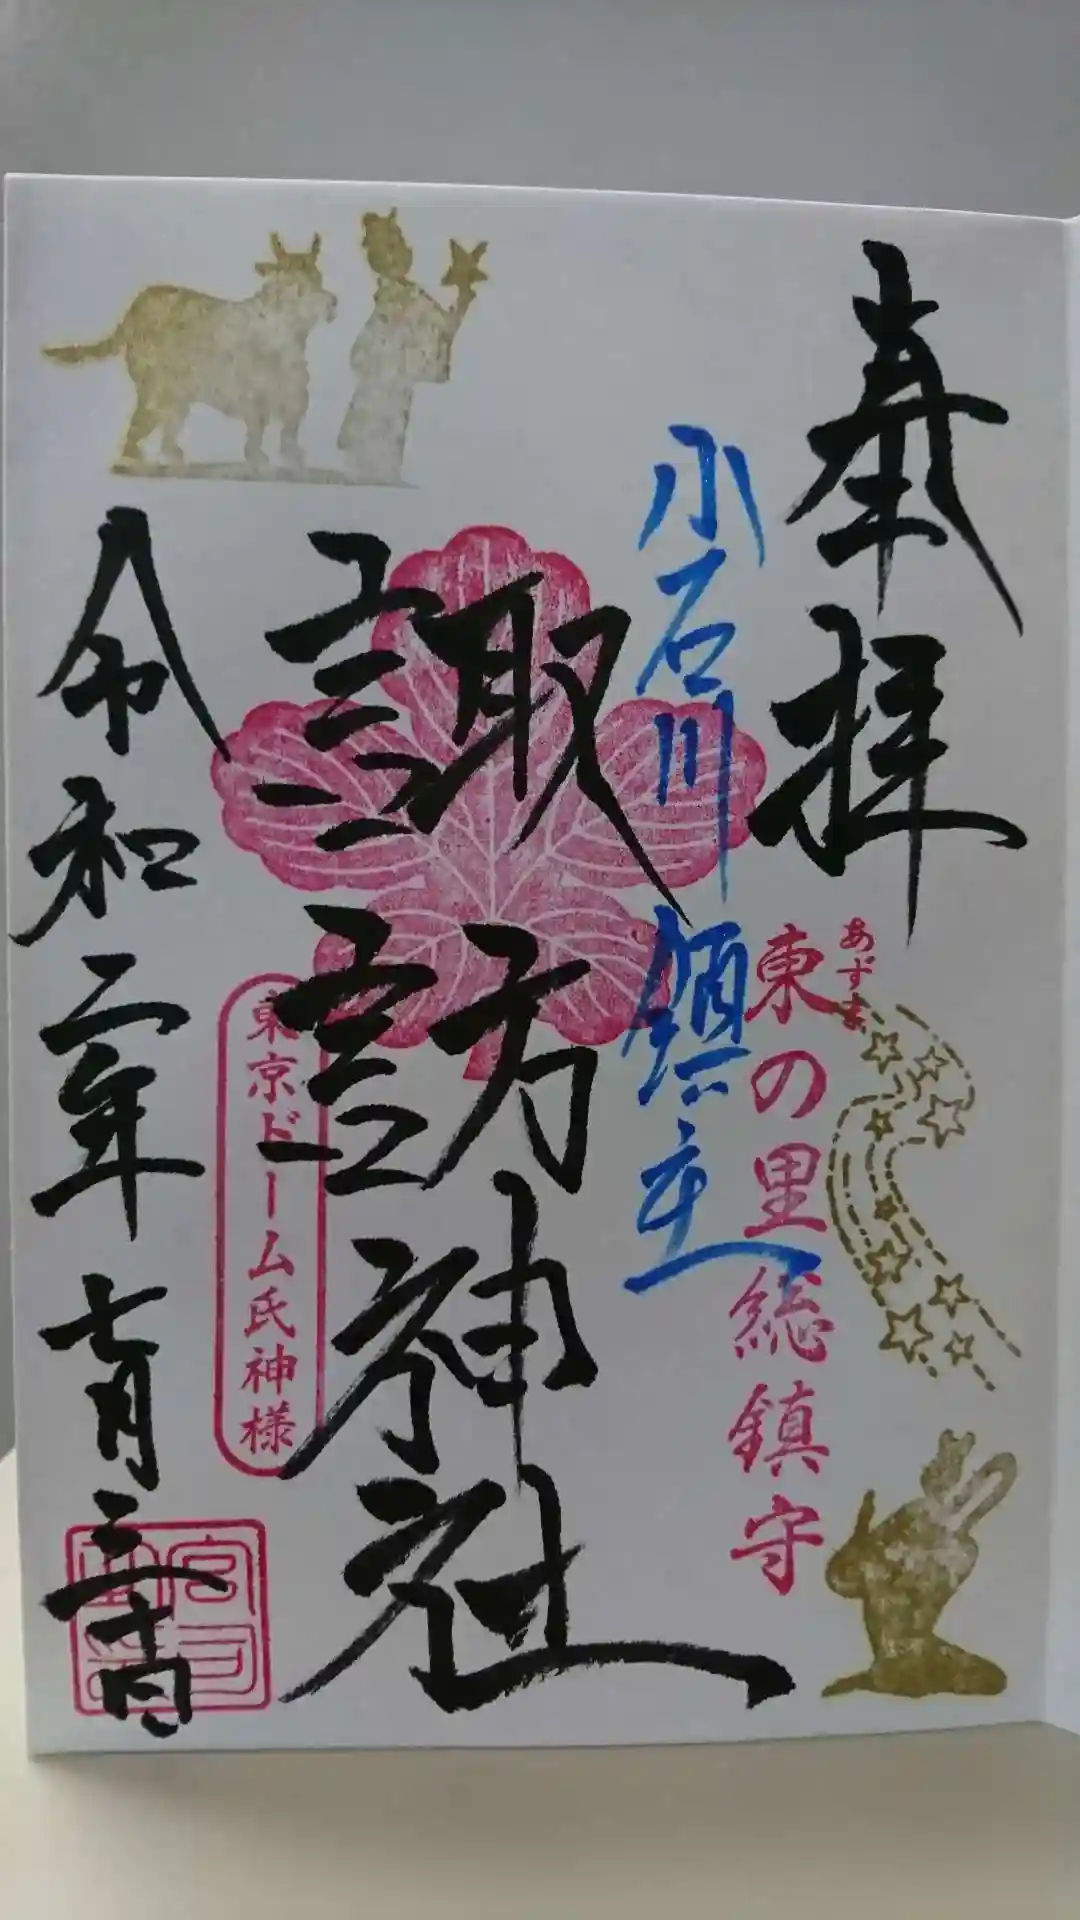 奉拝
小石川鎮主
あずま
東の里総鎮守
諏訪神社
東京ドーム氏神様
令和二年七月三十日